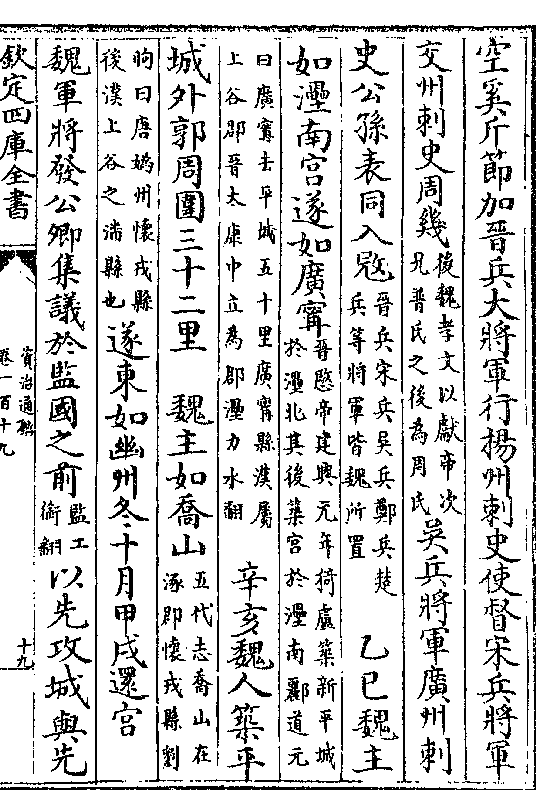 空奚斤節加晉兵大將軍行揚州刺史使督宋兵將軍
交州刺史周幾後魏孝文以獻帝次兄普氏之後為周氏吳兵將軍廣州刺
史公孫表同入冦晉兵宋兵吳兵鄭兵楚兵等將軍皆魏所置 乙巳魏主
如㶟南宫遂如廣甯晉愍帝建興元年猗盧築新平城於㶟北其後築宫於㶟南酈道元
曰廣甯去平城五十里廣甯縣漢屬上谷郡晉太康中立為郡㶟力水翻 辛亥魏人築平
城外郭周圍三十二里 魏主如喬山五代志喬山在涿郡懷戎縣劉
昫曰唐媯州懷戎縣後漢上谷之潘縣也遂東如幽州冬十月甲戌還宫
魏軍將發公卿集議於監國之前監工銜翻以先攻城與先
欽定四庫全書
資治通鑑
卷一百十九
十九